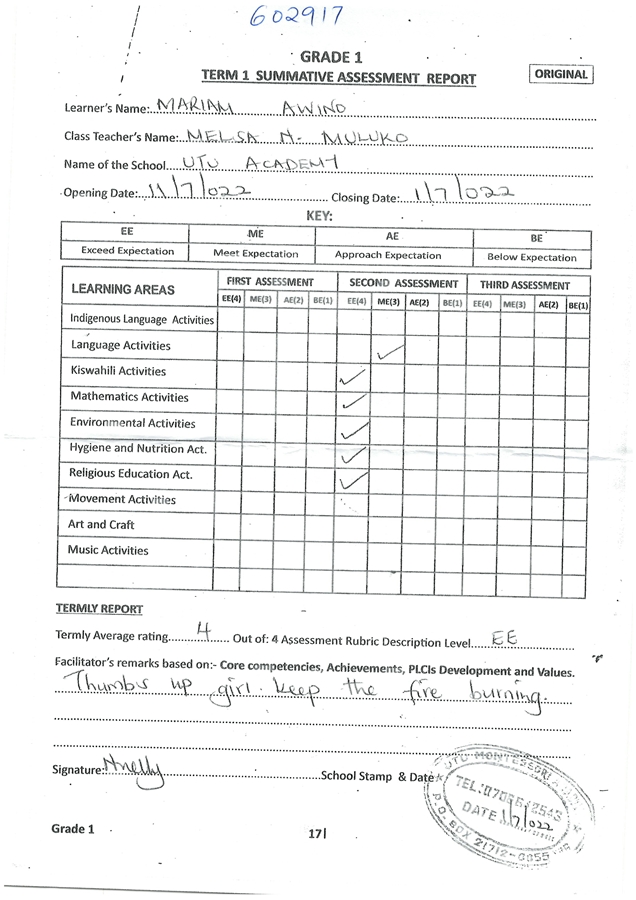 602917
GRADE 1
TERM 1 SUMMATIVE ASSESSMENT REPORT
ORIGINAL
Learner's Name: MARIAM AWINO
Class Teacher's Name: MELSA N. MULUKO
Name of the School UTU ACADEMY
Opening Date: 11/7/022 Closing Date: 1/7/022
KEY:
EE ME AE BE
Exceed Expectation Meet Expectation Approach Expectation Below Expectation
LEARNING AREAS FIRST ASSESSMENT SECOND ASSESSMENT THIRD ASSESSMENT
EE(4) ME(3) AE(2) BE(1) EE(4) ME(3) AE(2) BE(1) EE(4) ME(3) AE(2) BE(1)
Indigenous Language Activities
Language Activities ✓
Kiswahili Activities ✓
Mathematics Activities ✓
Environmental Activities ✓
Hygiene and Nutrition Act. ✓
Religious Education Act. ✓
Movement Activities
Art and Craft
Music Activities
TERMLY REPORT
Termly Average rating 4 Out of: 4 Assessment Rubric Description Level EE
Facilitator's remarks based on:- Core competencies, Achievements, PLCIs Development and Values.
Thumbs up girl. keep the fire burning.
Signature: School Stamp & Date
UTU MONTESSORI
TEL:
DATE 1/7/022
P.O. BOX 21712-
Grade 1
17|